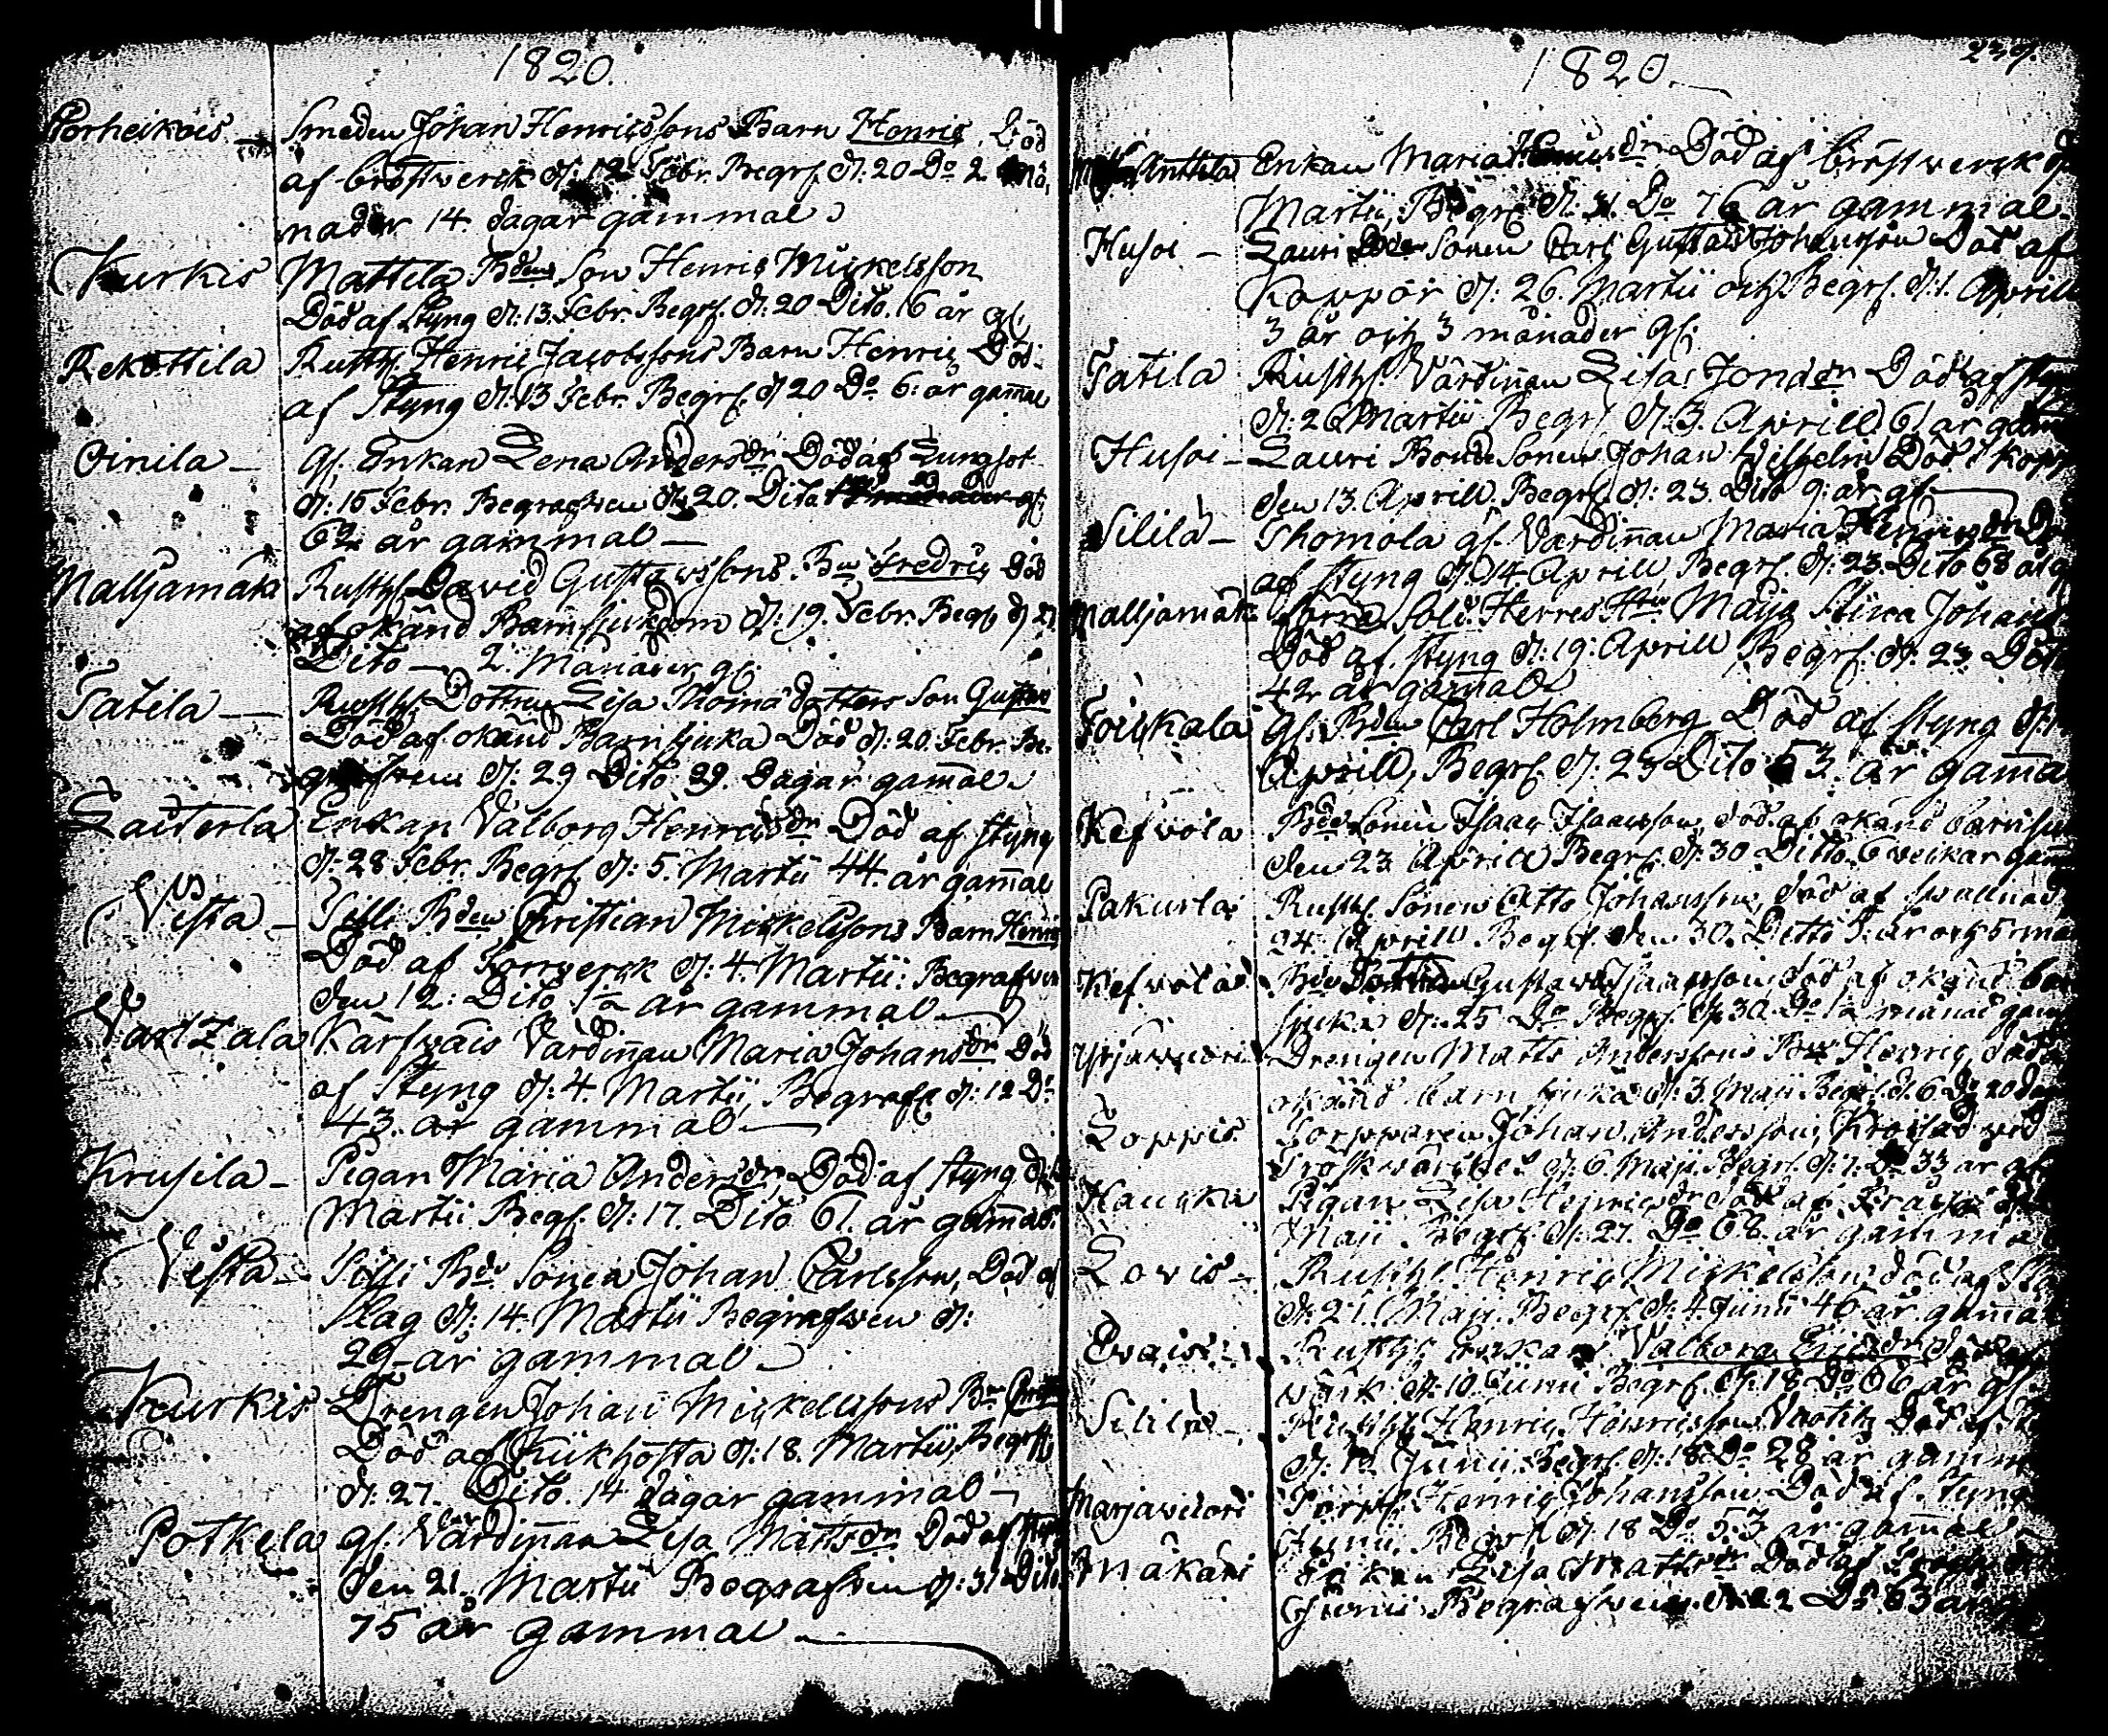 1820.
Porheikois — Smeden Johan Henricssons Barn Henric, Död
af bröstverck d: 12 Febr. Begrf. d: 20 Do 2 Må,
nader 14. dagar gammal
Kurkis Mattila Bdens Son Henric Mickelsson
Död af Styng d: 13. Febr. Begrf. d: 20 Dito. 16 år gl.
Rekottila Rusth. Henric Jacobssons Barn Henric Död
af Styng d: 13 Febr. Begrf. d 20 Do 6: år gamal
Oinila — Gl. Enkan Lena Andersdr Död af Lungsot
d: 15 Febr. Begrafven d: 20. Dito
62 år gammal —
Nalljamäki Rusth. David Gustafssons Bn Fredric Död
af okänd Barnsjukdom d: 19. Febr. Begrf d 27
Dito — 2. Månader gl.
Tatila — Rusth. Dottren Lisa Thomædotters Son Gustav
Död af okänd Barnsjuka Död d: 20. Febr. Be-
grafven d: 29 Dito 29. Dagar gamal
Lauterla Enkan Valborg Henricsdr Död af styng
d: 28 Febr. Begrf. d: 5. Martii 44. år gamal
Vista — Silli Bden Christian Mickelssons Barn Henric
Död af Torrverck d: 4. Martii. Begrafven
den 12. Dito 1½ år gammal —
Vartzala Karsvais Värdinnan Maria Johansdr Död
af Styng d: 4. Martii, Begrafn d: 12 Do
43. år gammal —
Krusila — Pigan Maria Andersdr Död af styng d:
Martii Begrf. d: 17. Dito 61. år gammal.
Vista — Silli Bde Sonen Johan Carlsson, Död af
Slag d: 14. Martii Begrafven d:
29 år gammal —
Kurkis Drengen Johan Mickelssons Bn
Död af Kikhosta d: 18. Martii, Begrff
d: 27. Dito. 14 dagar gammal —
Potkela gl. Värdinnan Lisa Mattsdr Död af styng
den 21. Martii Begrafven d: 31 Dito.
75 år gammal —
1820. — 239.
Anttila Enkan Maria Död af bröstverck d:
Martii, Begrf. d: 31. Do 76 år gammal
Husoi — Lauri Sonen Carl Gustaf Johansson Död af
Koppor d: 26. Martii och Begrf. d: 1. Aprill
3 år och 3 månader gl.
Tatila Rusth. Värdinnan Lisa Jonædr Död af styng
d: 26 Martii Begrf d: 3. Aprill 61 år gam
Husoi — Lauri Bonde Sonen Johan Wilhelm Död i kopp
den 13. Aprill. Begrf. d: 23. Dito 9: år gl. —
Silila — Thomola gl. Värdinnan Maria
af styng d: 14 Aprill, Begrf. d: 23. Dito 68 år g
Nalljamäk Sold. Herres Hu Maja Stina Johans
Död af styng d: 19: Aprill Begrf. d: 23. Dito
42 år gamal
Toickala gl. Bden Carl Holmberg Död af styng d:
Aprill, Begrf. d: 23 Dito 53. år gama
Kefvola Bde Sonen Isaac Isaacsson, död af okänd barnsju
den 23 Aprill Begrf. d: 30 Ditto. 6 veckor gam
Pakurla Rusth. Sonen Otto Johansson, död af
24. Aprill Begrf. den 30. Ditto år och 5 må
Kefvola Bde Gustava Isaacsson död af okänd
sjuka d: 25 Do Begrf. d: 30. Do månad gam
Drengen Matts Anderssons Bn Henric, död
okänd barnsjuka d: 3. Maji Begrf. d. 6. Do 20 da
Loppis Torpparen Johan Andersson, Krossad ved
d: 6. Maji. Begrf. d: 7. Do 33 år gl
Haucka Pigan Lisa Henricsdr död af
Maji Begrf. d: 27. Do 68. år gamma
Lovis — Rusth. Henric Mickelsson död af
d: 21. Maji. Begrf. d: 4. Junii 46 år. gama
Evais — Rusth. Enkan Valborg Ericsdr
värk d: 10. Junii Begrf. d: 18. Do 66 år gl.
Silila — Rusthl. Henric Henricsson Död af
d: Junii. Begrf. d: 18. Do 28 år gamm
Marjavuori Torpf. Henric Johansson Död af styng
Junii. Begrf. d: 18 Do 53 år gamal —
Mäkäri Enkan Lisa Mattsdr Död af
Junii Begrafven d: 22 Do 83 år